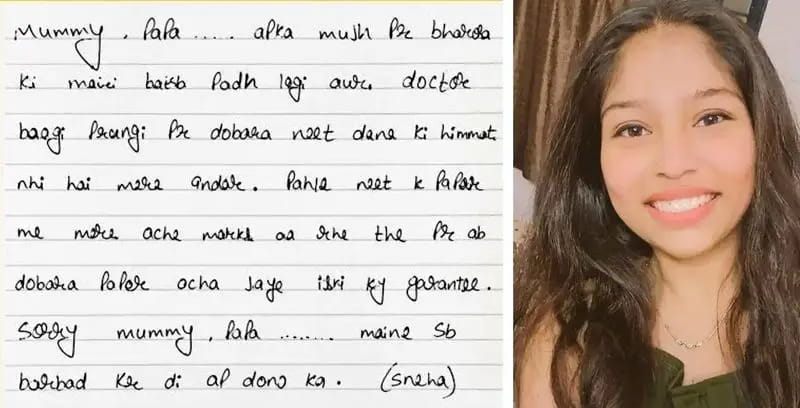 Mummy, Papa ..... apka mujh Pr bharosa
Ki mairi baitb Padh legi aur doctor
baegi Prangi Pr dobara neet dene ki himmat
nhi hai mere andar. Pahle neet k PaPar
me mere ache marks aa rhe the Pr ab
dobara PaPer acha Jaye iski ky garantee.
Sorry mummy, PaPa ........ maine Sb
barbad Kr di ap dono ka. (Sneha)